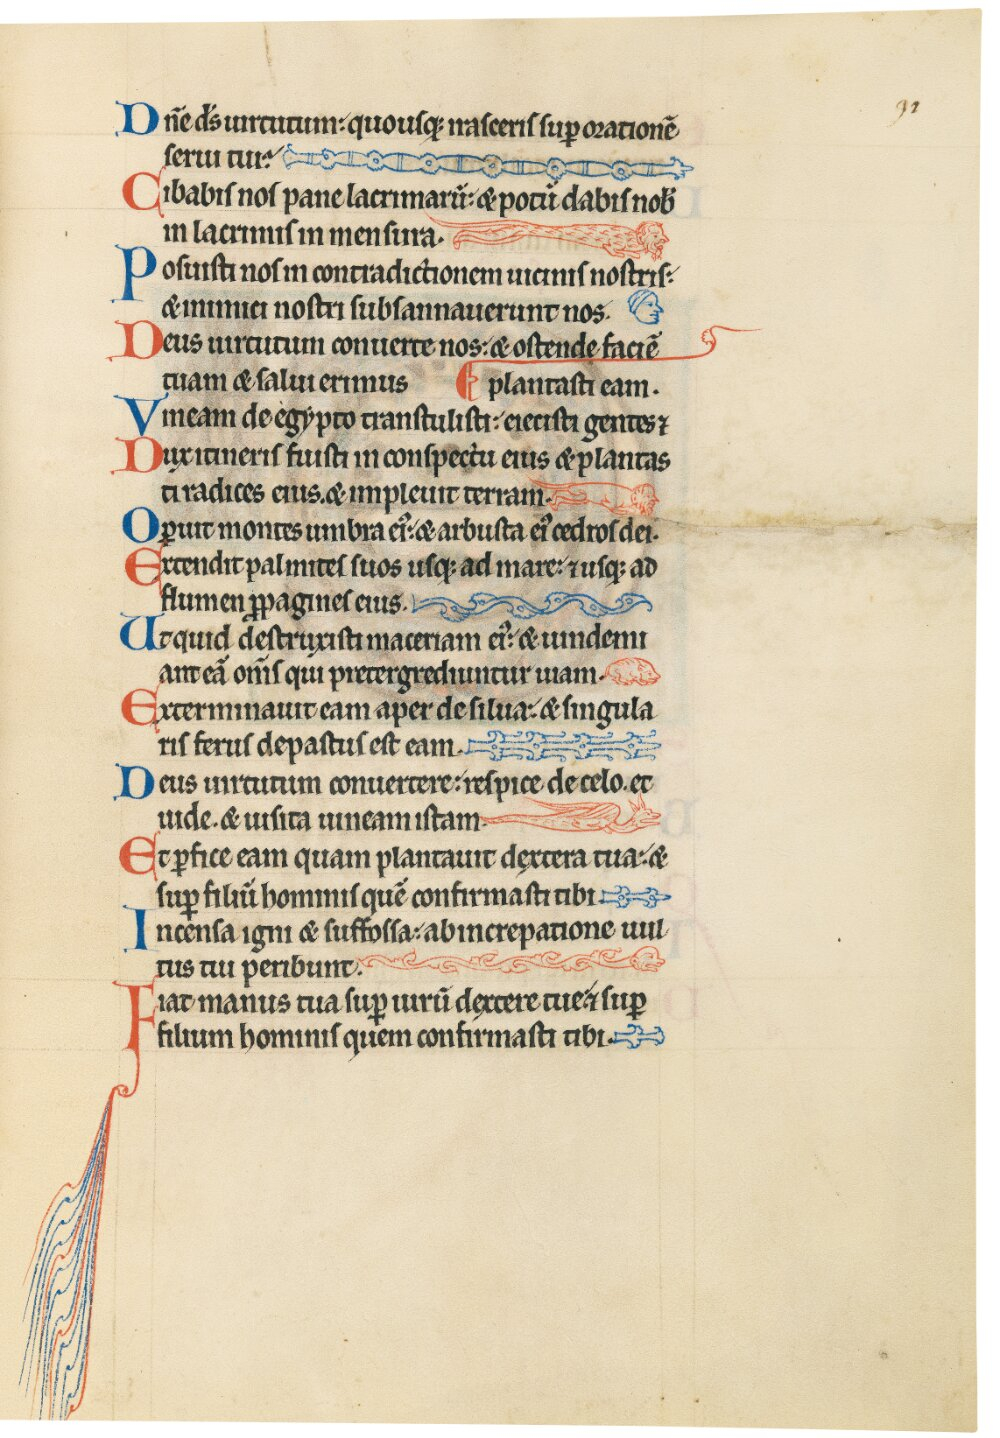 92
Dn̄e ds̄ uirtutum: quousq; irasceris sup orationē
serui tui:
Cibabis nos pane lacrimarū: & potū dabis nob̄
in lacrimis in mensura.
Posuisti nos in contradictionem uicinis nostris:
& inimici nostri subsannauerunt nos.
Deus uirtutum conuerte nos: & ostende faciē
tuam & salui erimus plantasti eam.
Vineam de egypto transtulisti: eiecisti gentes ⁊
Dux itineris fuisti in conspectu eius & plantas
ti radices eius. & impleuit terram.
Operuit montes umbra ei᷒: & arbusta ei᷒ cedros dei.
Extendit palmites suos usq; ad mare: ⁊ usq; ad
flumen ꝓpagines eius.
Ut quid destruxisti maceriam ei᷒: & uindemi
ant eā om̄s qui pretergrediuntur uiam.
Exterminauit eam aper de silua: & singula
ris ferus depastus est eam.
Deus uirtutum conuertere: respice de celo. et
uide. & uisita uineam istam.
Et ꝑfice eam quam plantauit dextera tua: &
suꝑ filiū hominis quē confirmasti tibi.
Incensa igni & suffossa: ab increpatione uul
tus tui peribunt.
Fiat manus tua suꝑ uirū dextere tue: ⁊ suꝑ
filium hominis quem confirmasti tibi.